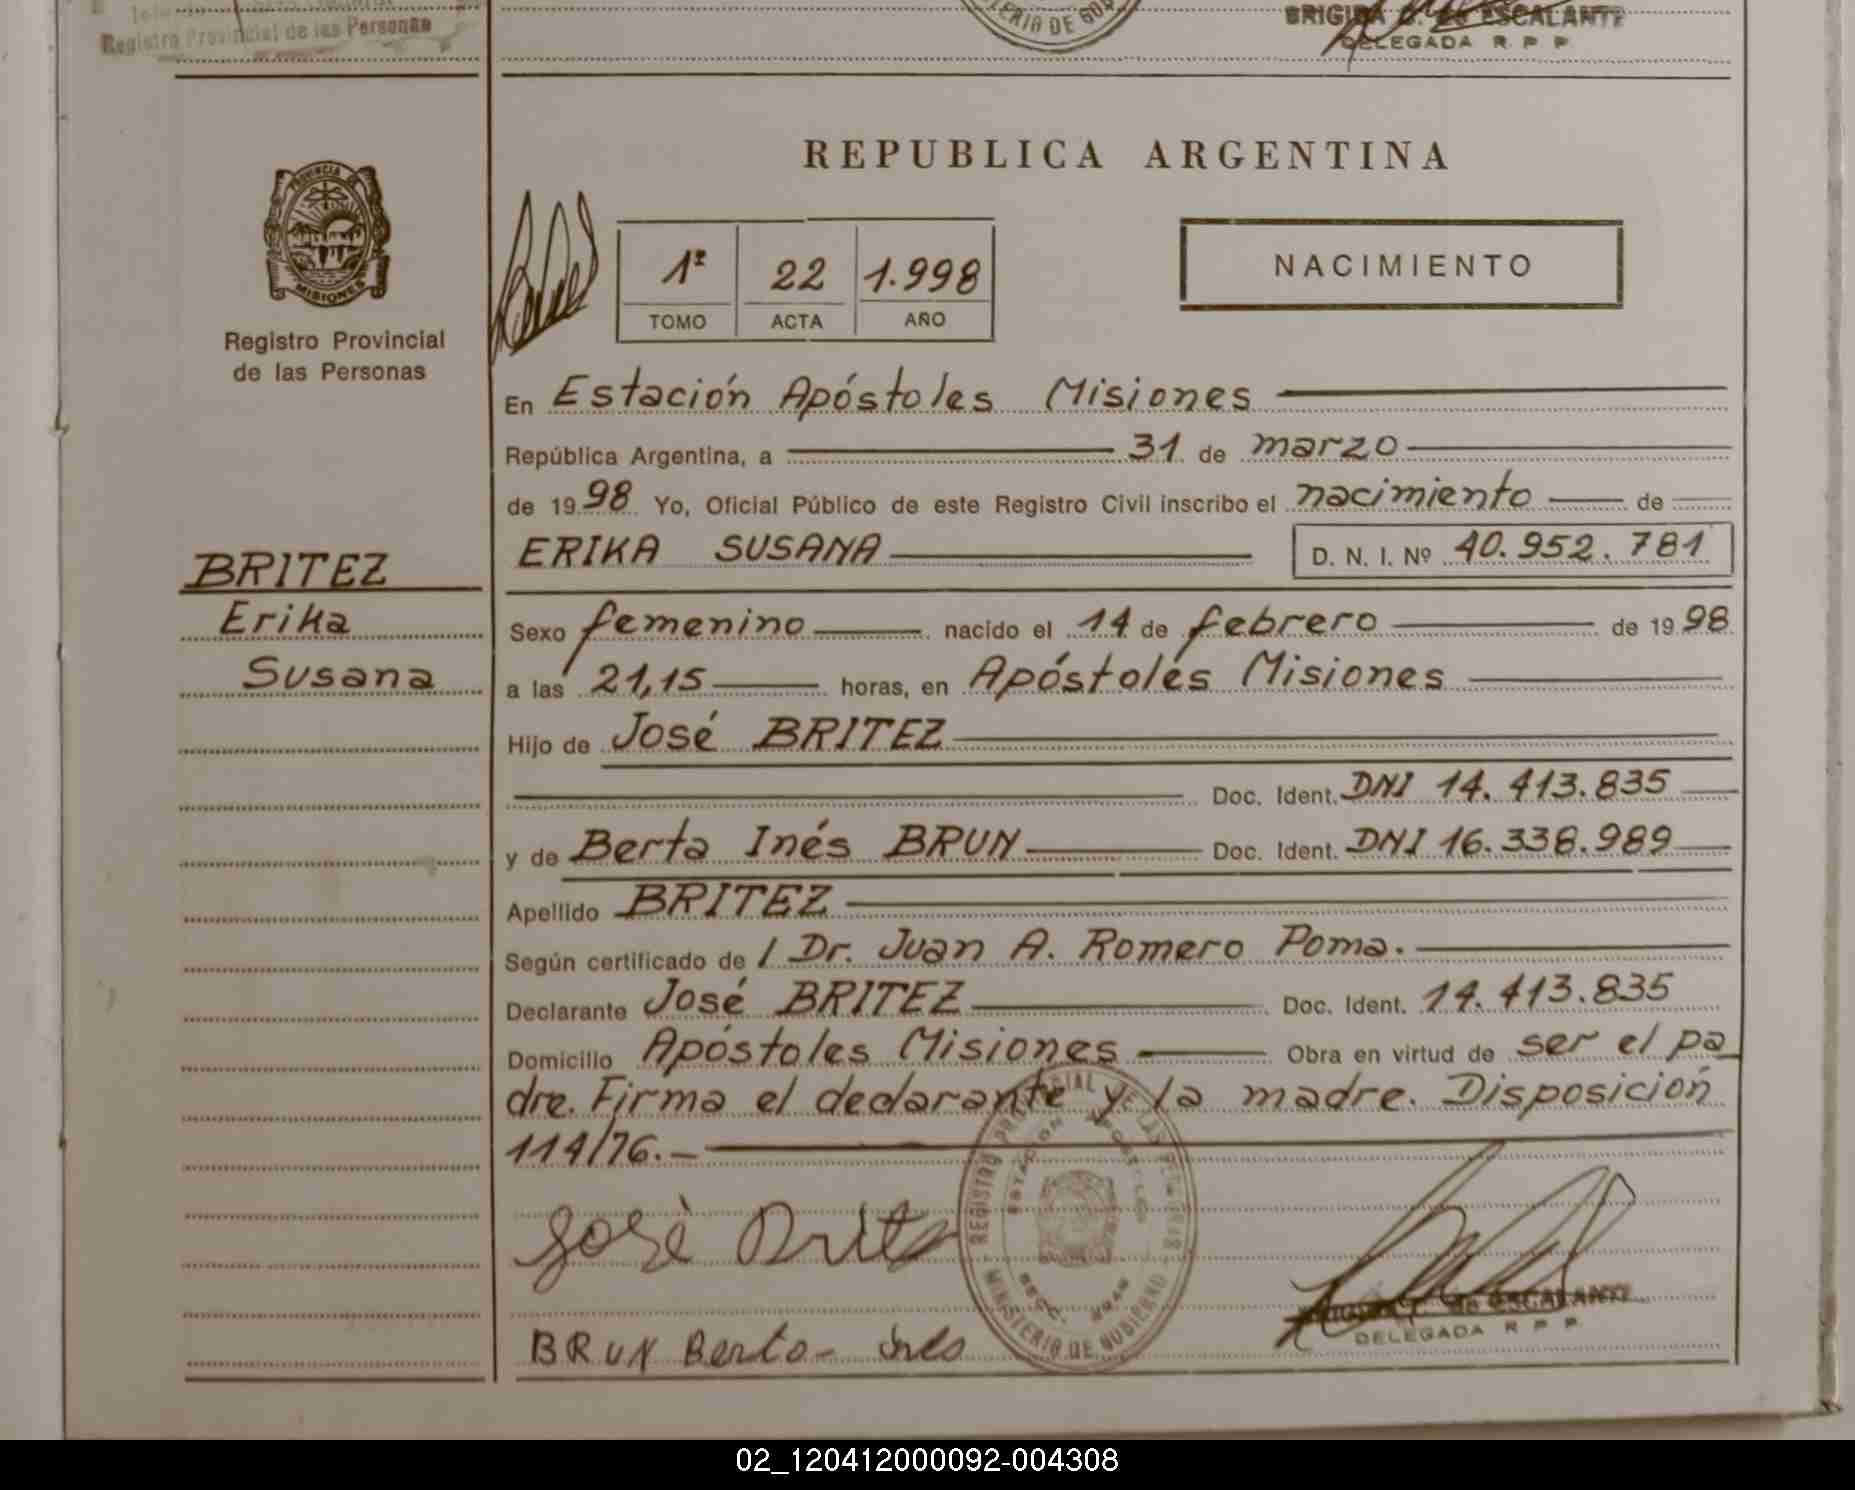 Registro Provincial de las Personas
BRIGIDA G. de ESCALANTE
DELEGADA R. P. P.
REPUBLICA ARGENTINA
PROVINCIA DE
MISIONES
Registro Provincial
de las Personas
1º 22 1.998
TOMO ACTA AÑO
NACIMIENTO
En Estación Apóstoles Misiones
República Argentina, a 31 de marzo
de 1998 Yo, Oficial Público de este Registro Civil inscribo el nacimiento de
BRITEZ
Erika
Susana
ERIKA SUSANA D. N. I. Nº 40.952.781
Sexo femenino nacido el 14 de febrero de 1998
a las 21,15 horas, en Apóstoles Misiones
Hijo de José BRITEZ
Doc. Ident. DNI 14.413.835
y de Berta Inés BRUN Doc. Ident. DNI 16.338.989
Apellido BRITEZ
Según certificado de l Dr. Juan A. Romero Poma.
Declarante José BRITEZ Doc. Ident. 14.413.835
Domicilio Apóstoles Misiones Obra en virtud de ser el pa
dre. Firma el declarante y la madre. Disposición
114/76.-
José Britz
REGISTRO PROVINCIAL DE LAS PERSONAS
ESTACION APOSTOLES
MINISTERIO DE GOBIERNO
BRUN Berta- Ines
de ESCALANTE
DELEGADA R P P
02_120412000092-004308